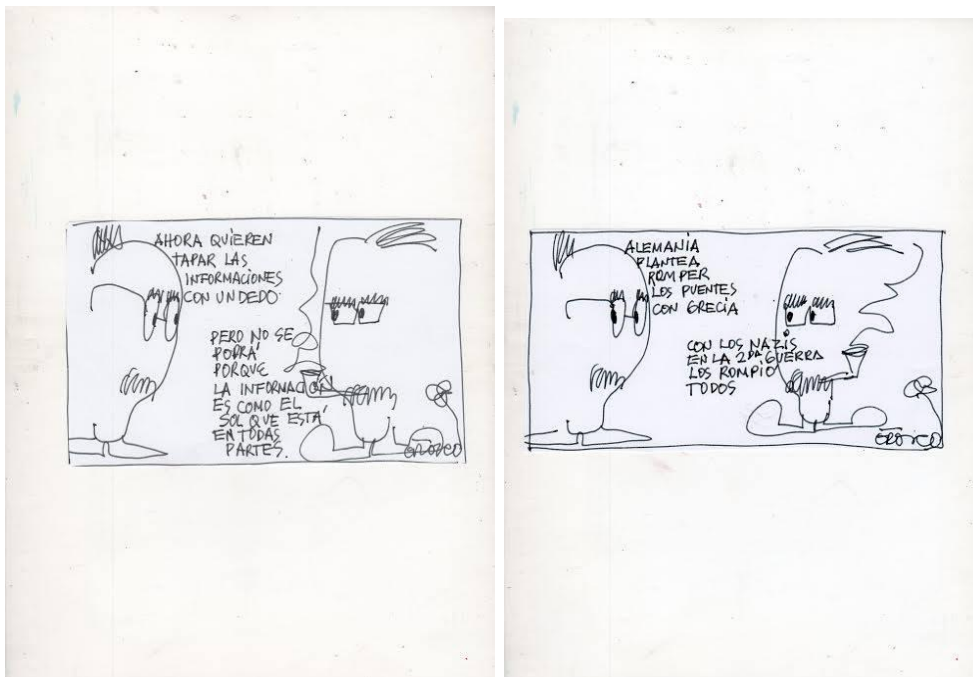 AHORA QUIEREN
TAPAR LAS
INFORMACIONES
CON UN DEDO.
PERO NO SE
PODRÁ
PORQUE
LA INFORMACIÓN
ES COMO EL
SOL QUE ESTÁ
EN TODAS
PARTES.
ALEMANIA
PLANTEA
ROMPER
LOS PUENTES
CON GRECIA
CON LOS NAZIS
EN LA 2DA GUERRA
LOS ROMPIO
TODOS